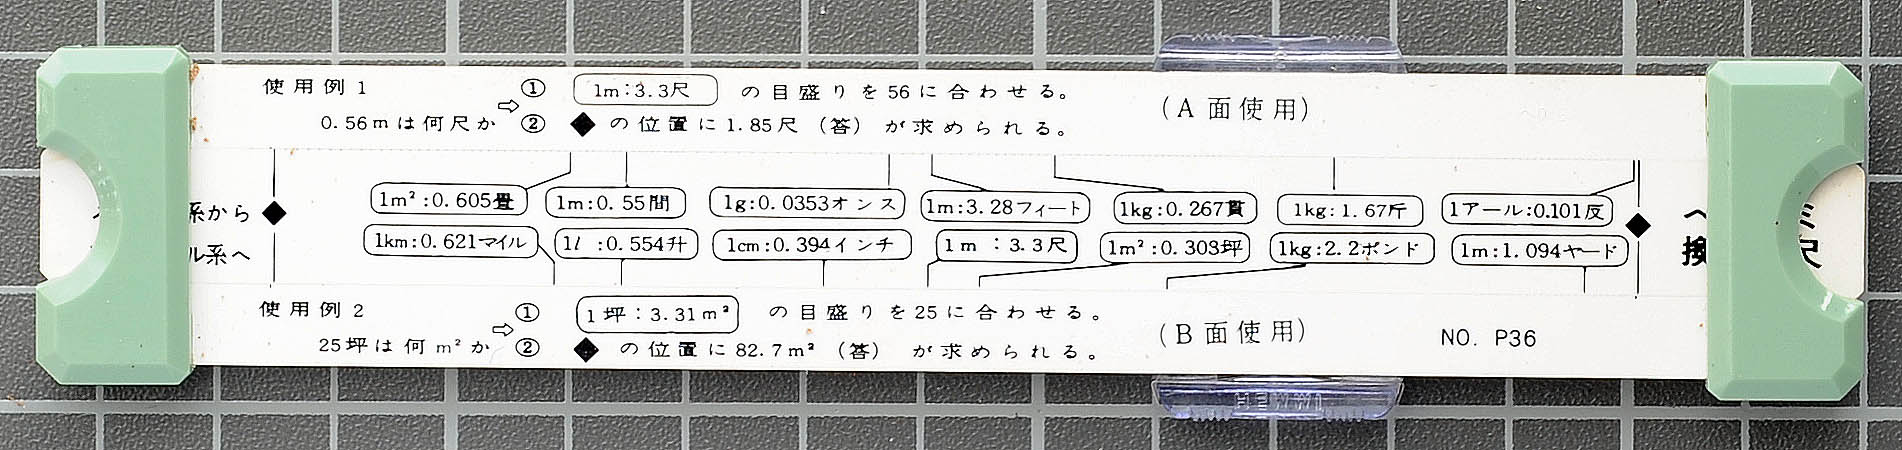 使用例1 ① 1m:3.3尺 の目盛りを56に合わせる。 (A面使用)
0.56mは何尺か ⇨ ② ◆の位置に1.85尺(答)が求められる。
系から ◆ 1m²:0.605畳 1m:0.55間 1g:0.0353オンス 1m:3.28フィート 1kg:0.267貫 1kg:1.67斤 1アール:0.101反 ◆
ル系へ 1km:0.621マイル 1l:0.554升 1cm:0.394インチ 1m:3.3尺 1m²:0.303坪 1kg:2.2ポンド 1m:1.094ヤード
使用例2 ① 1坪:3.31m² の目盛りを25に合わせる。 (B面使用) NO. P36
25坪は何m²か ⇨ ② ◆の位置に82.7m²(答)が求められる。
HEMMI